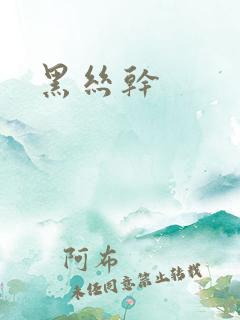 黑絲幹
阿布
未经同意禁止转载